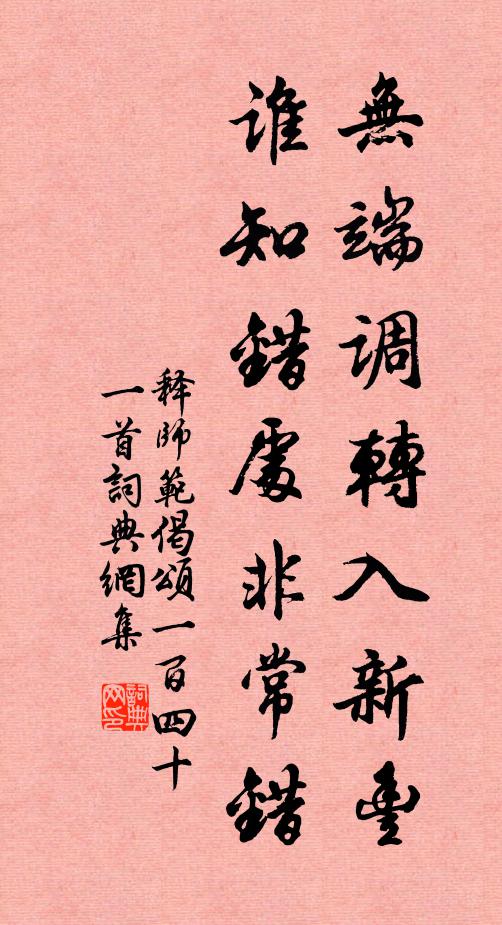 無端調轉入新豐
誰知錯處非常錯
释師範偈頌一百四十
一首詞典網集
詞典
网印